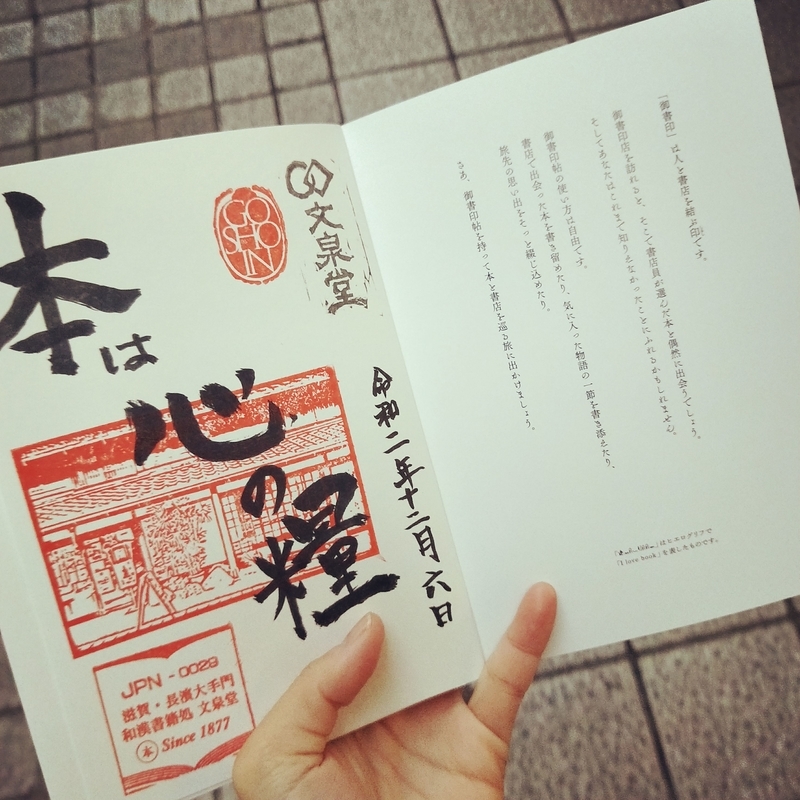 「御書印」は人と書店を結ぶ印です。
御書印店を訪れると、そこで書店員が選んだ本と偶然に出会うでしょう。
そしてあなたはこれまで知りえなかったことにふれるかもしれません。
御書印帖の使い方は自由です。
書店で出会った本を書き留めたり、気に入った物語の一節を書き添えたり、
旅先の思い出をそっと綴じ込めたり。
さあ、御書印帖を持って本と書店を巡る旅に出かけましょう。
」はヒエログリフで
「I love book」を表したものです。
文泉堂
GO
SHO
IN
本は
心の糧
令和二年十二月六日
JPN - 0029
滋賀・長濱大手門
和漢書籍処 文泉堂
本 Since 1877